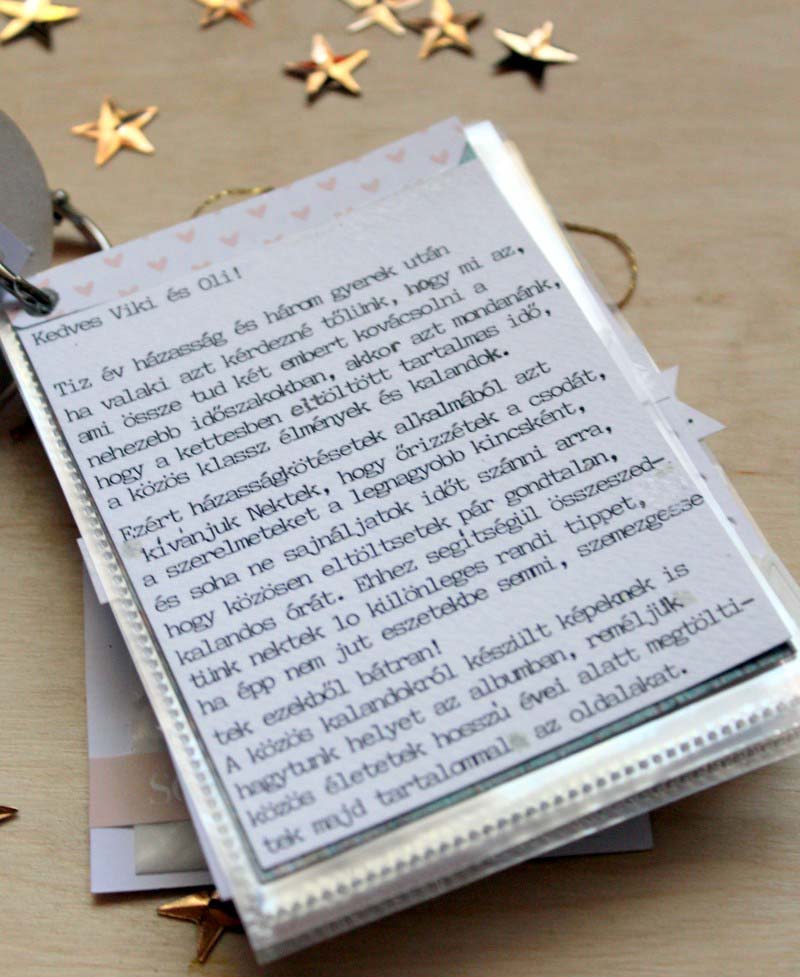 Kedves Viki és Oli!
Tiz év házasság és három gyerek után
ha valaki azt kérdezné tőlünk, hogy mi az,
ami össze tud két embert kovácsolni a
nehezebb időszakokban, akkor azt mondanánk,
hogy a kettesben eltöltött tartalmas idő,
a közös klassz élmények és kalandok.
Ezért házasságkötésetek alkalmából azt
kívanjuk Nektek, hogy őrizzétek a csodát,
a szerelmeteket a legnagyobb kincsként,
és soha ne sajnáljatok időt szánni arra,
hogy közösen eltöltsetek pár gondtalan,
kalandos órát. Ehhez segítségül összeszed-
tünk nektek 1o különleges randi tippet,
ha épp nem jut eszetekbe semmi, szemezgesse
tek ezekből bátran!
A közös kalandokról készült képeknek is
hagytunk helyet az albumban, reméljük
közös életetek hosszú évei alatt megtölti-
tek majd tartalommal az oldalakat.